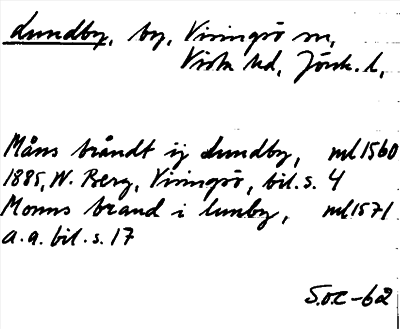 Lundby, by, Visingsö sn,
Vista hd, Jönk. l,
Måns bråndt ij Lundby, ml 1560
1885, W. Berg, Visingsö, bil. s. 4
Monns brand i lunby, ml 1571
a. a. bil. s. 17
S.O.C -62